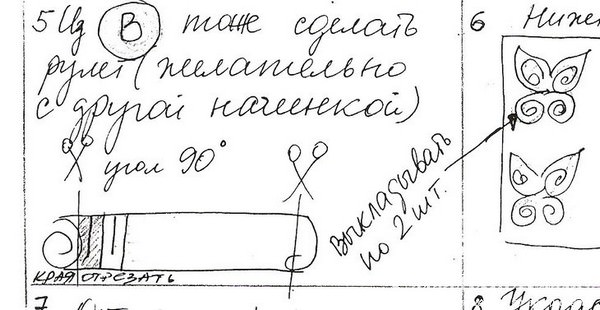 5 Из В тоже сделать
рулет (желательно
с другой начинкой)
угол 90°
КРАЯ ОТРЕЗАТЬ
6
выкладывать
по 2 шт.
7
8